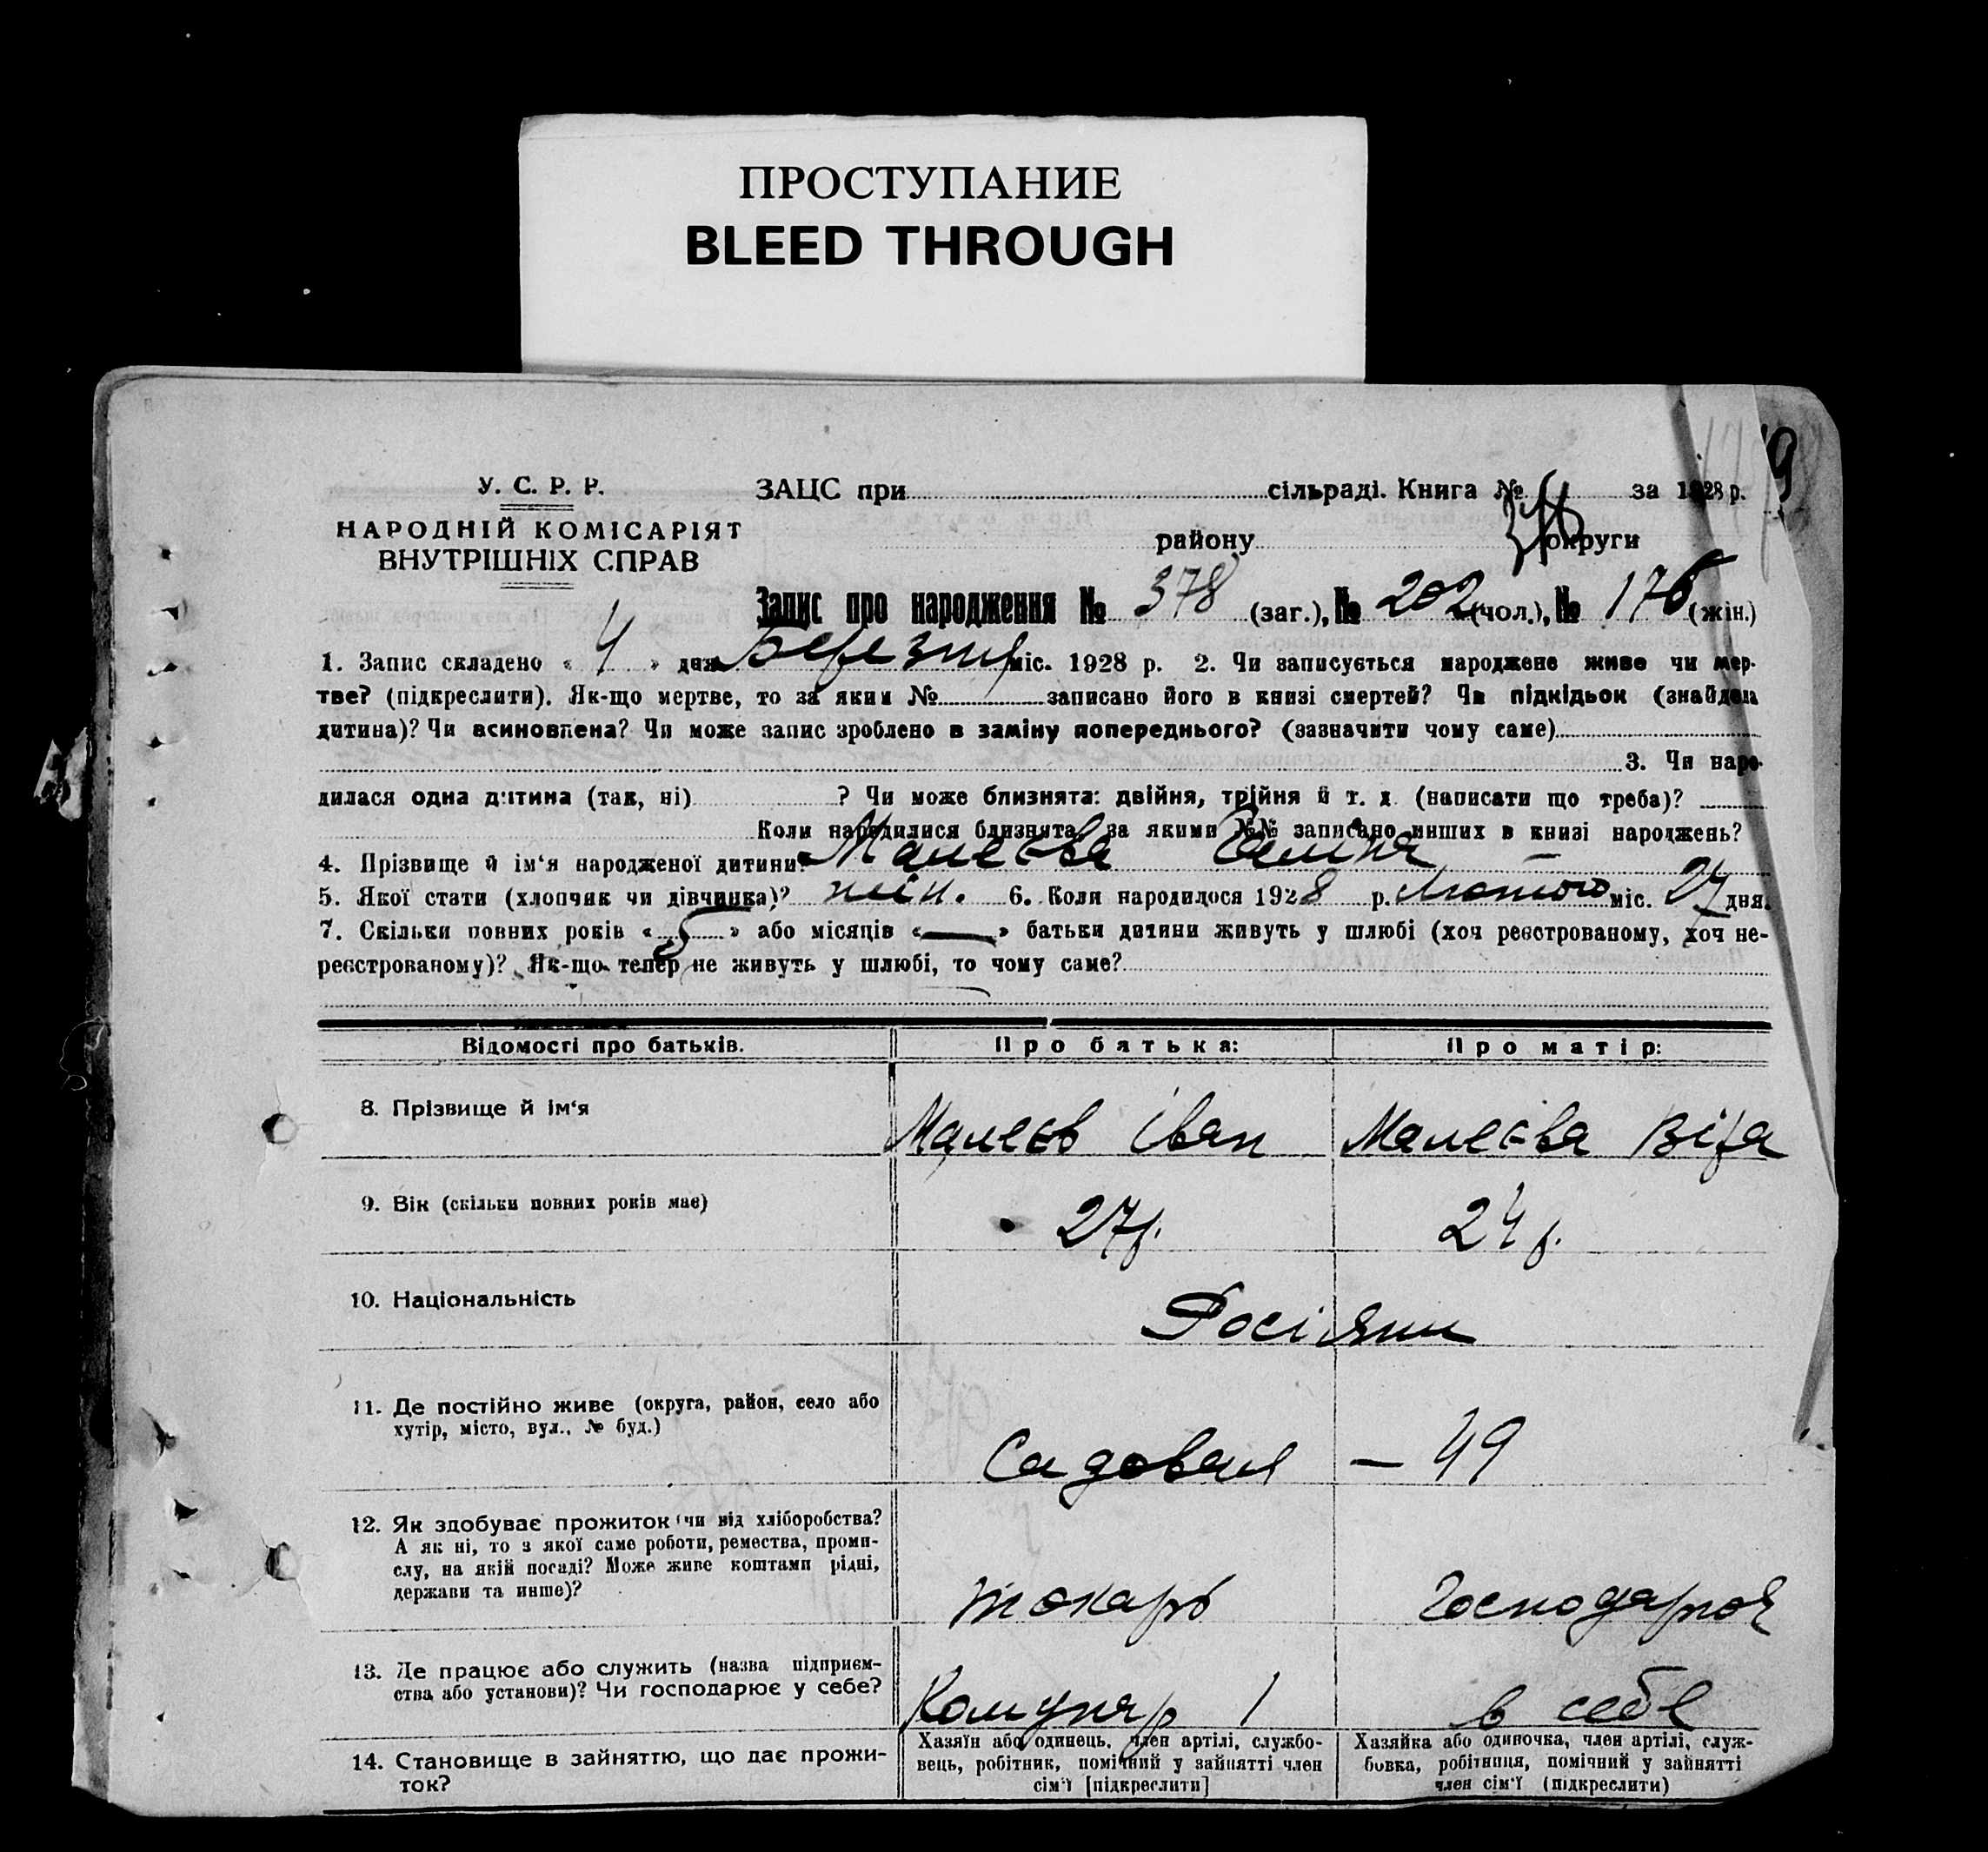 ПРОСТУПАНИЕ
BLEED THROUGH
У. С. Р. Р.
НАРОДНІЙ КОМІСАРІЯТ
ВНУТРІШНІХ СПРАВ
ЗАЦС при сільраді. Книга № за 1928 р.
району округи
Запис про народження № 378 (заг.), № 202 (чол.), № 176 (жін.)
1. Запис складено « 4 » дня Березня міс. 1928 р. 2. Чи записується народжене живе чи мер-
тве? (підкреслити). Як-що мертве, то за яким № записано його в книзі смертей? Чи підкідьок (знайдена
дитина)? Чи всиновлена? Чи може запис зроблено в заміну попереднього? (зазначити чому саме)
3. Чи наро-
дилася одна дитина (так, ні) ? Чи може близнята: двійня, трійня й т. д. (написати що треба)?
Коли народилися близнята, за якими №№ записано инших в книзі народжень?
4. Прізвище й ім‘я народженої дитини: Малеєва Галина —
5. Якої стати (хлопчик чи дівчинка)? жін. 6. Коли народилося 1928 р. Лютого міс. 27 дня.
7. Скільки повних років « 5 » або місяців « — » батьки дитини живуть у шлюбі (хоч реєстрованому, хоч не-
реєстрованому)? Як-що тепер не живуть у шлюбі, то чому саме?
Відомості про батьків. Про батька: Про матір:
8. Прізвище й ім‘я Малеєв Іван Малеєва Віра
9. Вік (скільки повних років має) 27 р. 24 р.
10. Національність Росіяни
11. Де постійно живе (округа, район, село або
хутір, місто, вул., № буд.)
Садовая — 49
12. Як здобуває прожиток (чи від хліборобства?
А як ні, то з якої саме роботи, ремества, проми-
слу, на якій посаді? Може живе коштами рідні,
держави та инше)?
токарь Господарноя
13. Де працює або служить (назва підприєм-
ства або установи)? Чи господарює у себе?
Комунар 1 в себе
14. Становище в зайняттю, що дає прожи-
ток?
Хазяїн або одинець, член артілі, службо-
вець, робітник, помічний у зайнятті член
сім‘ї [підкреслити]
Хазяйка або одиночка, член артілі, служ-
бовка, робітниця, помічний у зайнятті
член сім‘ї (підкреслити)